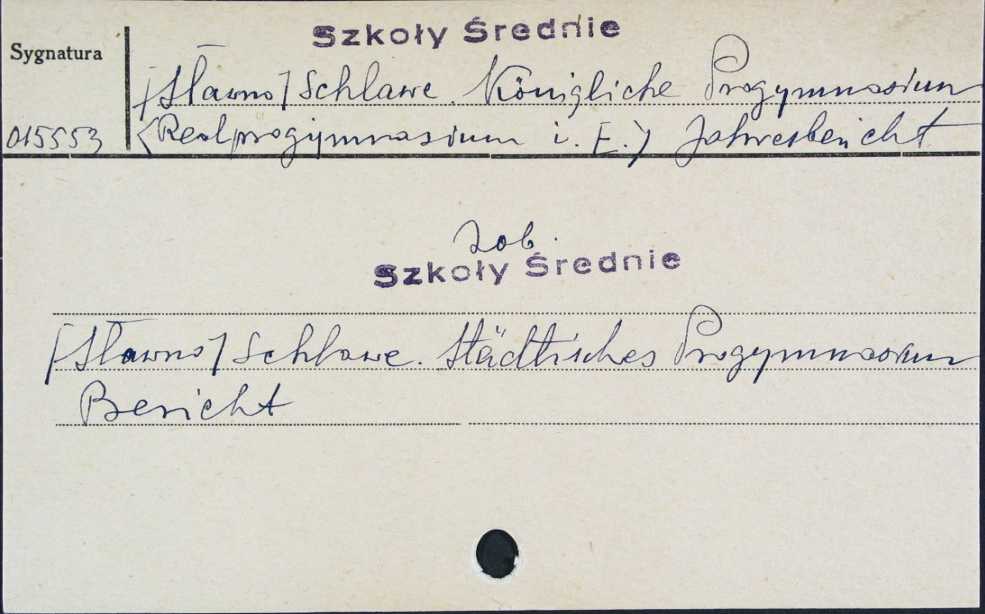 Szkoły Średnie
Sygnatura
[Sławno] Schlawe. Königliche Progymnasium
015553 <Realprogimnasium i. E.> Jahresbericht
Zob.
Szkoły Średnie
[Sławno] Schlawe. Städtisches Progymnasium
Bericht